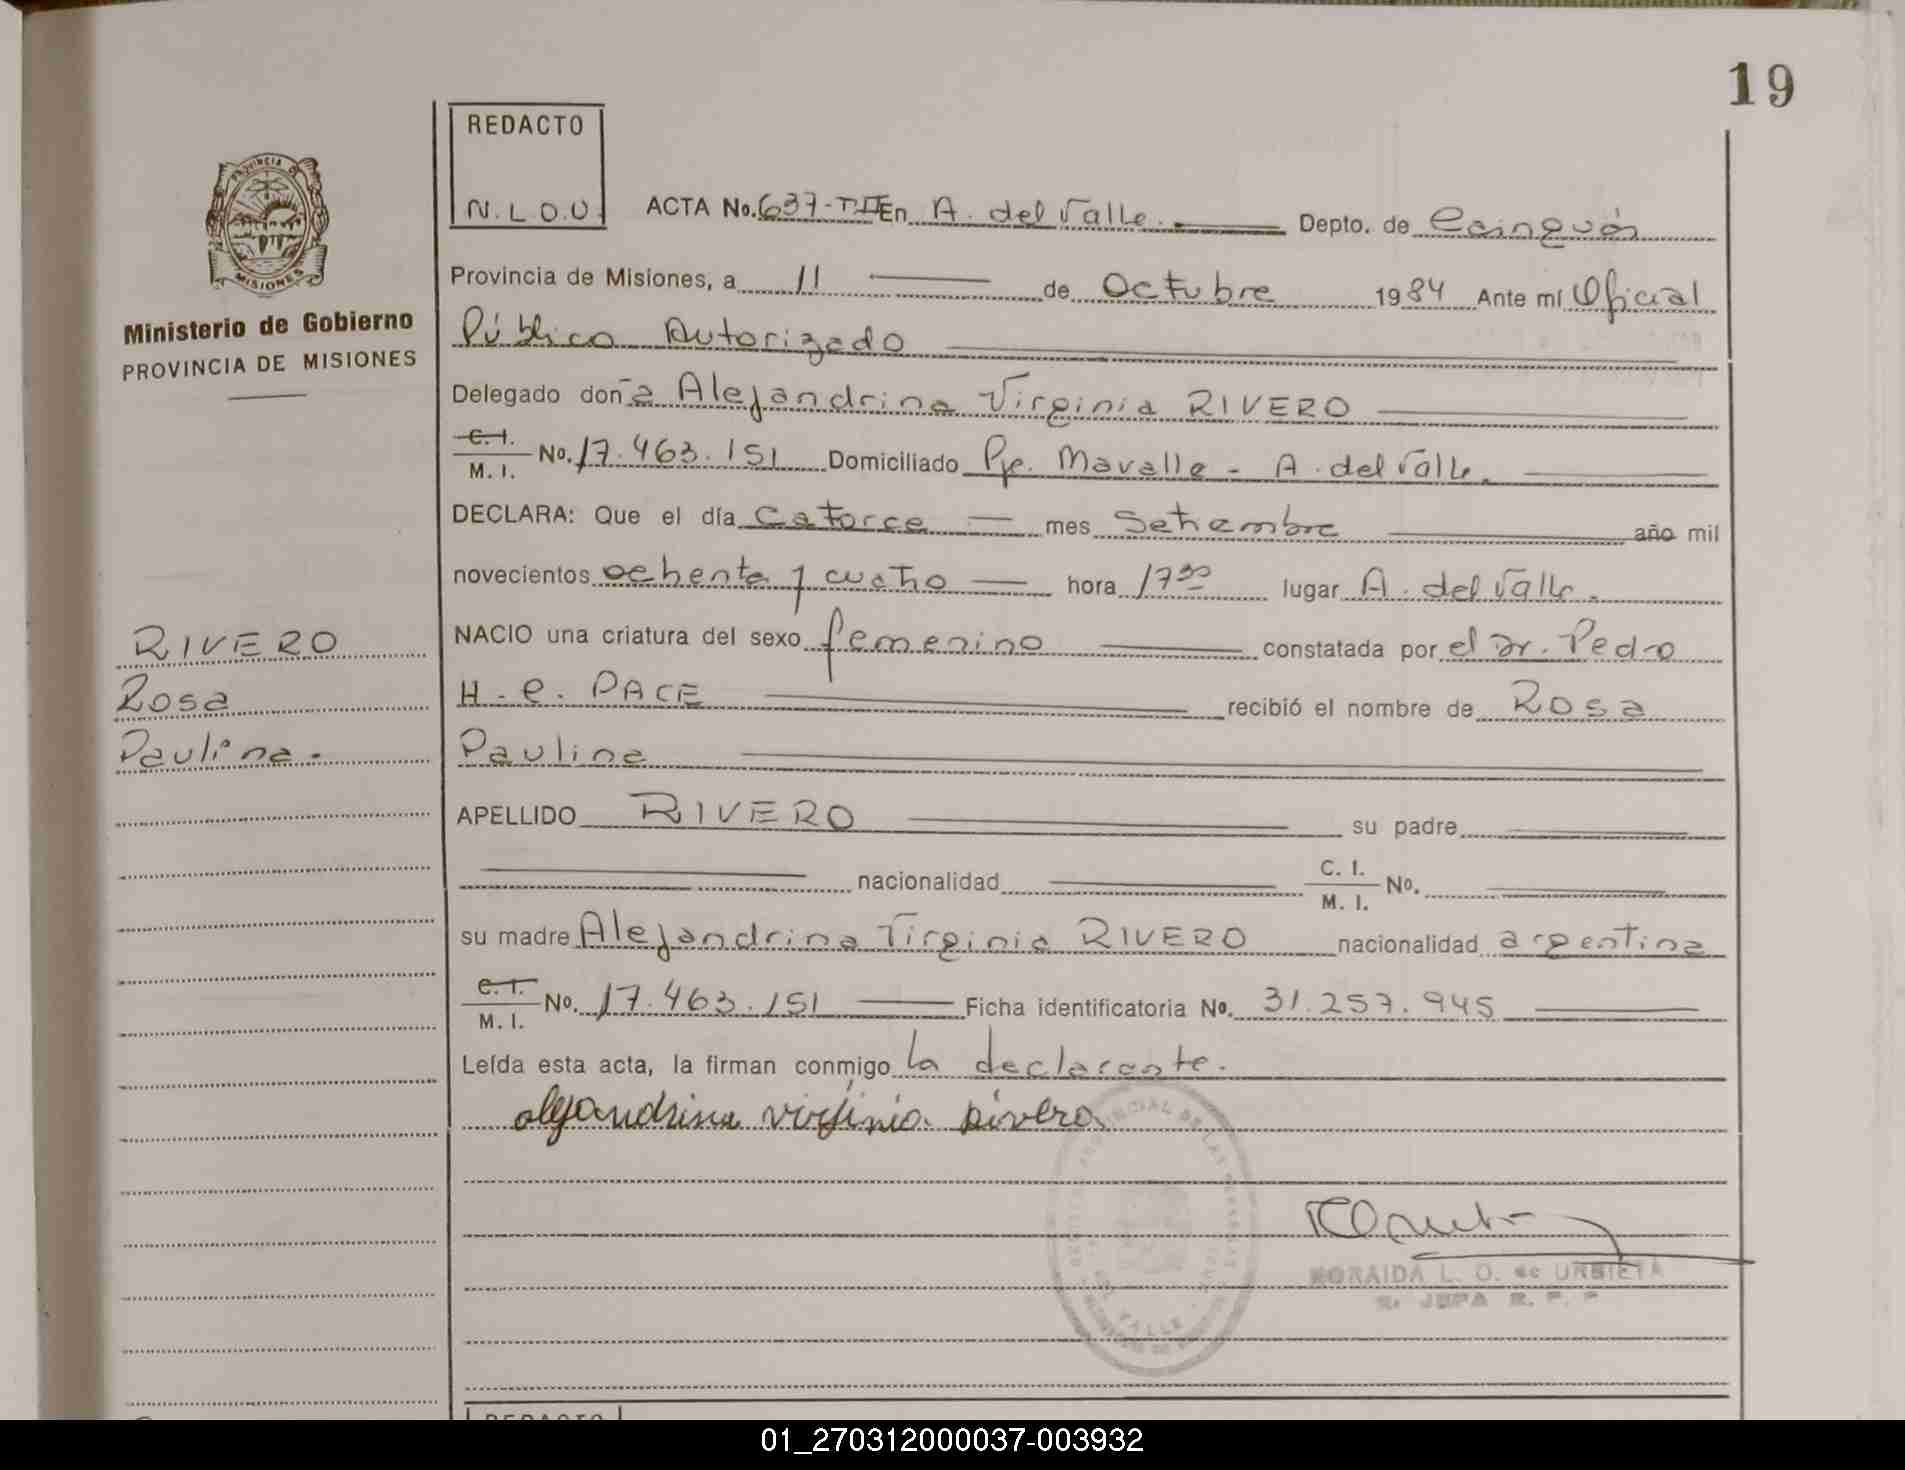 19
REDACTO
N.L.O.U.
ACTA No. 637-TII En A. del Valle. Depto. de Cainguás
PROVINCIA DE MISIONES
Provincia de Misiones, a 11 de Octubre 1984 Ante mí Oficial
Ministerio de Gobierno
PROVINCIA DE MISIONES
Público Autorizado
Delegado doña Alejandrina Virginia RIVERO
C. I. M. I. No. 17.463.151 Domiciliado Pje. Mavalle - A. del Valle.
DECLARA: Que el día Catorce mes Setiembre año mil
novecientos ochenta y cuatro hora 17 30 lugar A. del Valle.
RIVERO
Rosa
Paulina.
NACIO una criatura del sexo femenino constatada por el Dr. Pedro
H. C. PACE recibió el nombre de Rosa
Paulina
APELLIDO RIVERO su padre
nacionalidad C. I. M. I. No.
su madre Alejandrina Virginia RIVERO nacionalidad argentina
C. I. M. I. No. 17.463.151 Ficha identificatoria No. 31.257.945
Leída esta acta, la firman conmigo la declarante.
alejandrina virginia rivero
NORAIDA L. O. de URBIETA
VALLE
01_270312000037-003932